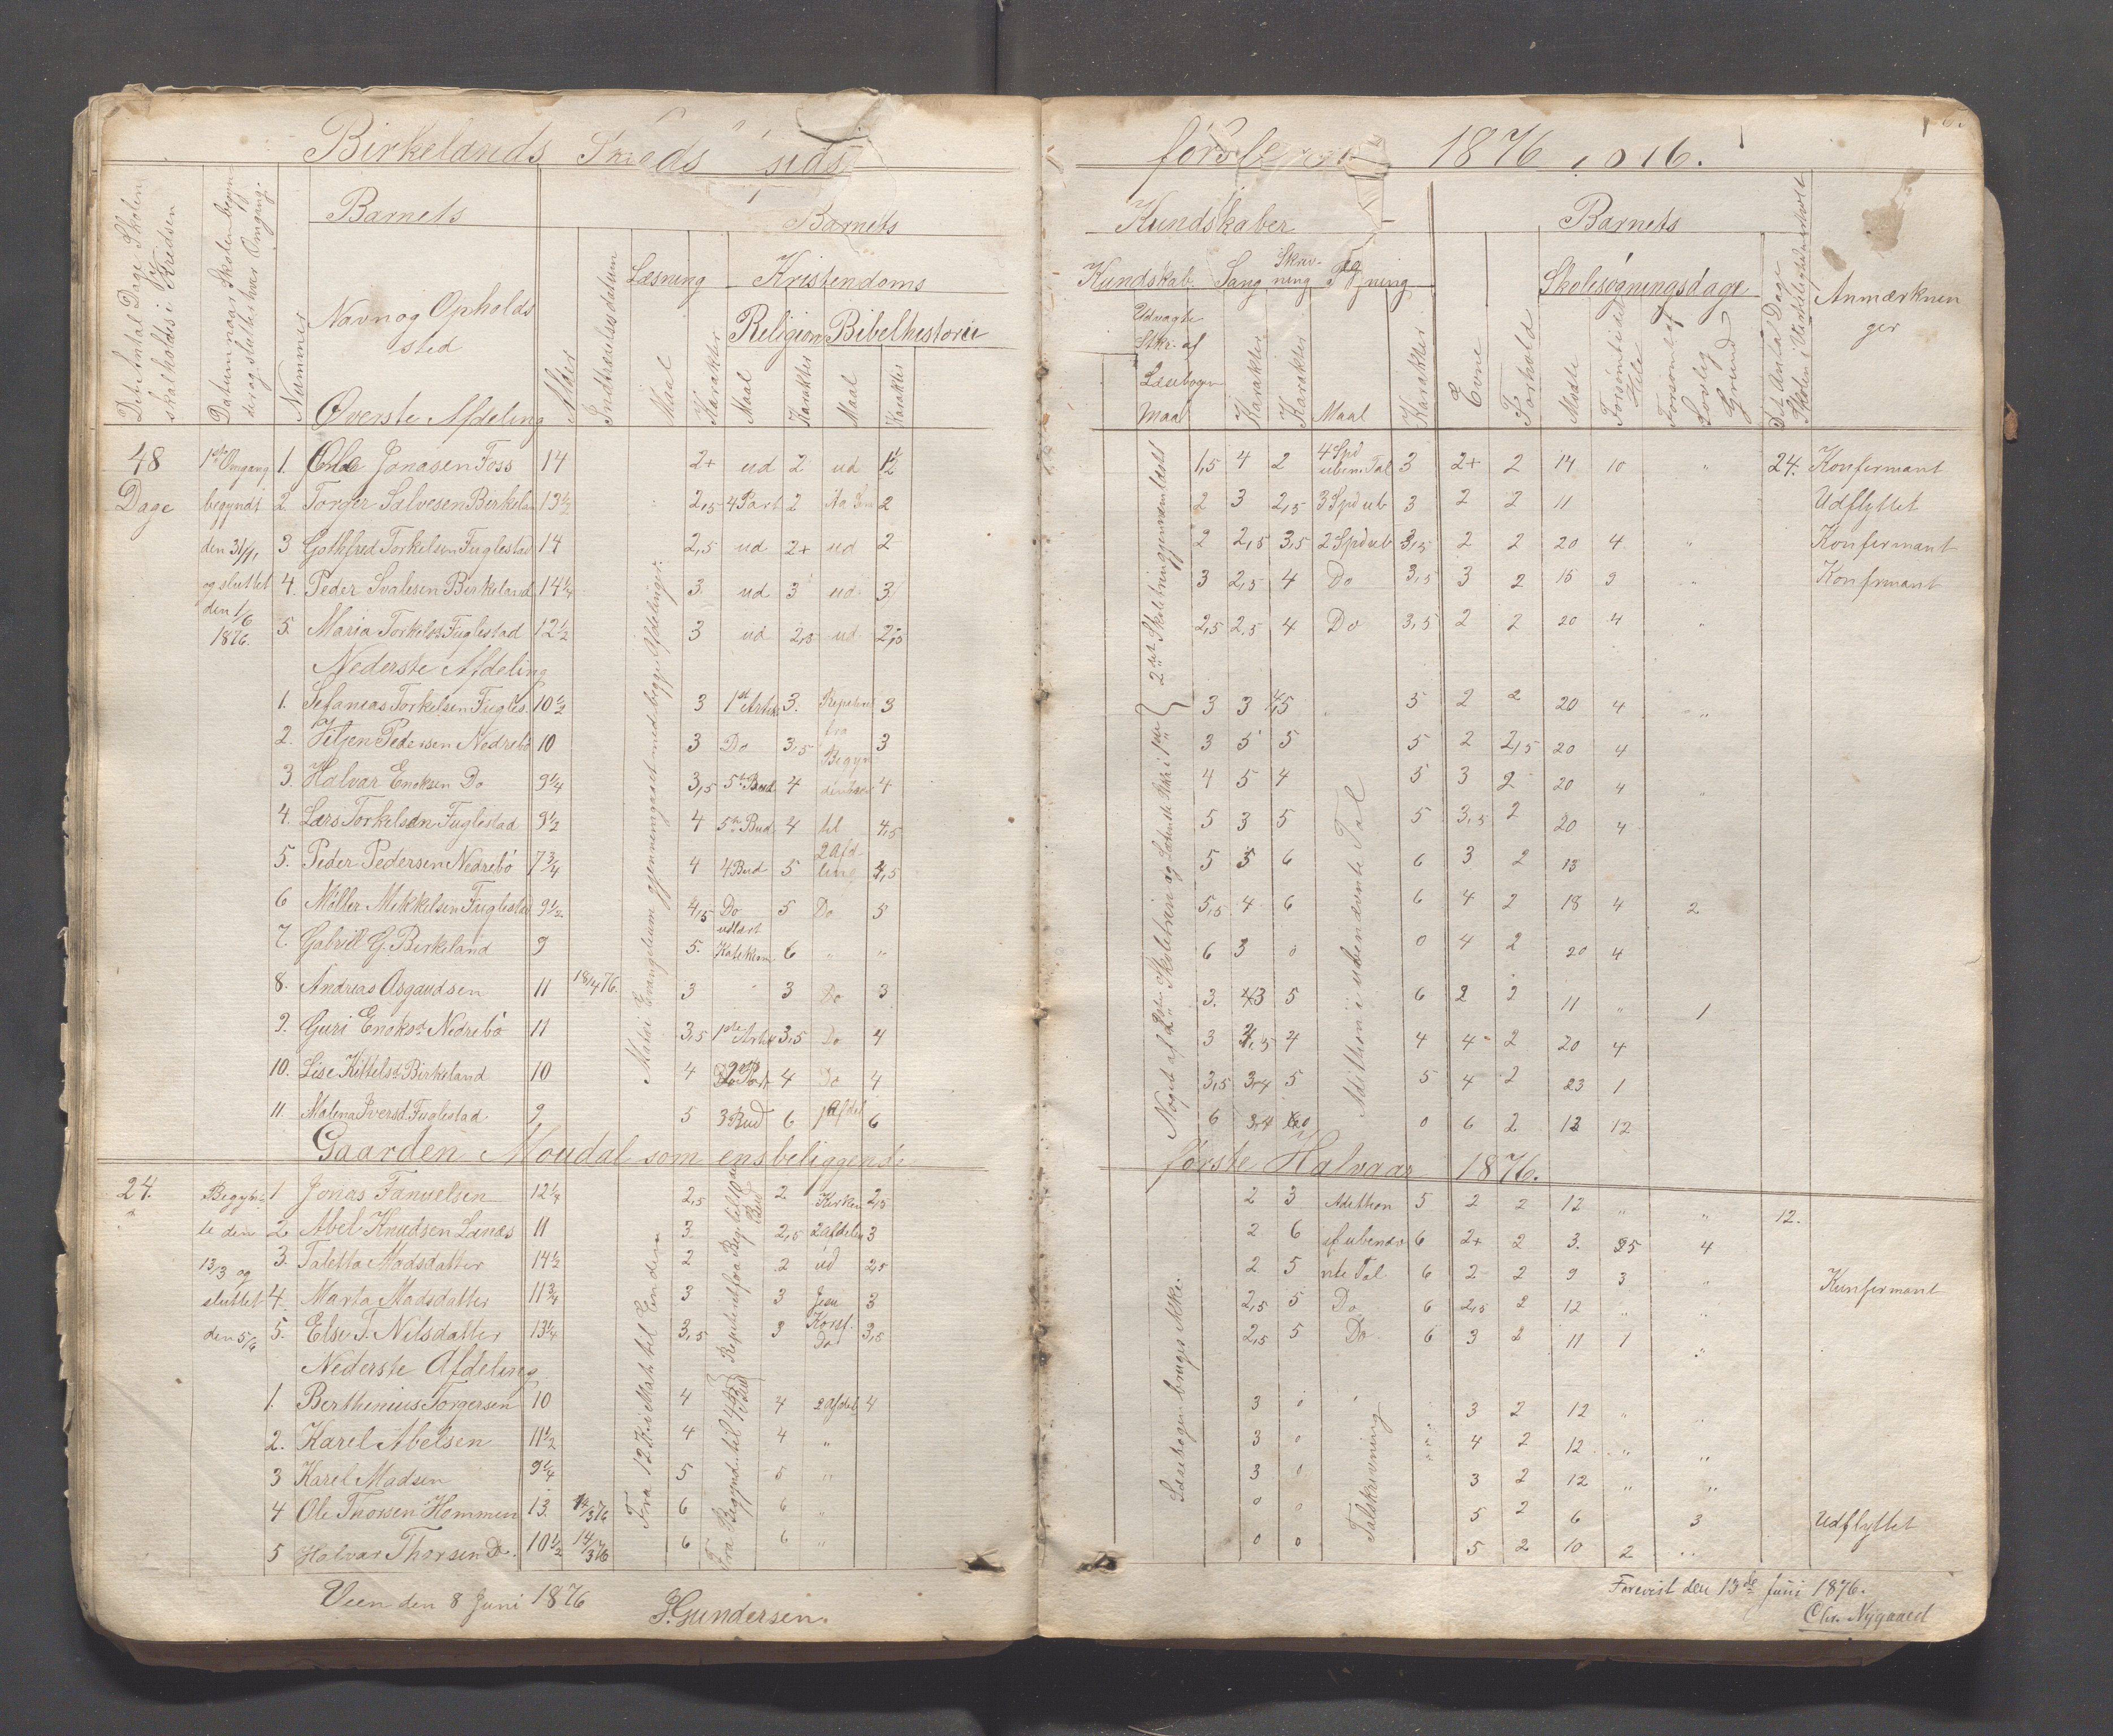 Birkelands
1876
Barnets
Barnets
Kundskaber
Barnets
Læsning
Kristendoms
Kundskab
Sang
Skriv-
ning
Skolesøgningsdage
Anmærknin
ger
Navn og Opholds
sted
Religion
Bibelhistorie
Udvagte
Stkr. af
Læsebogen
Maal
Det Antal Dage Skolen
skal holdes i Kredsen
Datum naar Skolen begyn
der og slutter hver Omgang.
Nummer
Alder
Indtrædelsesdatum
Maal
Karakter
Maal
Karakter
Maal
Karakter
Karakter
Karakter
Maal
Karakter
Evne
Forhold
Mødte
Forsømte
Hele
Forsømt af
Lovlig
Grund
Det Antal Dage
Skolen i Virkeligheden holdt
Øverste Afdeling
48 1ste Omgang 1. Ole Jonasen Foss 14 2+ ud 2 ud 1½ 1,5 4 2 4 Spd uben. Tal 3 2+ 2 14 10 " 24. Konfirmant
Dage begyndt 2 Torger Salvesen Birkelan 13½ 2,5 4 Part 2 2 2 3 2,5 3 Spd ub 3 2 2 11 Udflyttet
den 31/1 3 Gothfred Torkelsen Fuglestad 14 2,5 ud 2+ ud 2 2 2,5 3,5 2 Spd ub 3,5 2 2 20 4 " Konfirmant
og sluttet 4. Peder Svalesen Birkeland 14¼ 3. ud 3 ud 3 3 2,5 4 Do 3,5 3 2 15 9 " Konfirmant
den 1/6
1876. 5. Maria Torkelsd Fuglestad 12½ 3 ud 2,5 ud 2,5 2,5 2,5 4 Do 3,5 2 2 20 4 "
Nederste Afdeling
1. Sefanias Torkelsen Fugles. 10½ 3 1st Artik 3. Repeteret 3 3 3 4,5 5 2 2 20 4 "
2. Peder­sen Nedrebø 10 3 Do 3,5 fra Begyn 3 3 5 5 5 2 2,5 20 4
3. Halvar Enoksen Do 9¼ 3,5 5te Bud 4 delsen 4 4 5 4 5 3 2 20 4 "
4. Lars Torkelsen Fuglestad 9½ 4 5te Bud. 4 til 4,5 5 3 5 5 3,5 2 20 4
5. Peder Pedersen Nedrebø 7¾ 4 4 Bud 5 2 Afd­ling 4,5 5 5 6 6 3 2 13
6 Møller Mikkelsen Fuglestad 9½ 4,5 Do 5 Do 5 5,5 4 6 6 4 2 18 4 2
7. Gabriell G. Birkeland 9 5. udlært Katekism 6 " " 6 3 0 0 4 2 20 4
8. Andreas Asgaudsen 11 18/4 76. 3 " 3 Do 3 3. 3 5 6 2 2 11 " 1
9. Guri Enoksd Nedrebø 11 3,5 1ste Artik 3,5 Do 4 3 4,5 4 4 4 2 20 4
10. Lise Kittelsd Birkeland 10 4 4 Do 4 3,5 3,4 5 5 4 2 23 1
11. Malena Iversd Fuglestad. 9 5 3 Bud 6 1 Afdel 6 6 3,4 0 0 6 2 12 12
Mathæi Evangelium gjennemgaaet med begge Afdelinger.
2det Skoletrin gjennemlæst
Noget af 2det Skoletrin
Addithon i ubenævnte Tal
Gaarden Moudal som ensbeliggende første Halvaar 1876.
24. Begynt 1 Jonas Fanuelsen 12¼ 2,5 2 Kirken 2,5 2 3 Adithon 5 2 2 12 " " 12.
te den 2 Abel Knudsen Lænæs 11 3. 2,5 2 afdelin 3 2 6 af ubenæv 6 2+ 2 3. 25 4
13/3 og 3. Taletta Madsdatter 14½ 2 2 ud 2,5 2 5 nte Tal 6 2 2 9 3 " Kunfirmant
sluttet 4. Marta Madsdatter 11¾ 3 3 Jesu Korsf. 3 2,5 5 Do 6 2,5 2 12 " "
den 5/6 5. Else T. Nilsdatter 13¼ 3,5 3 Do 3,5 2,5 5 Do 6 3 2 11 1 "
Nederste Afdeling
1. Berthinius Torgersen 10 4 4 2 afdel 4 3 0 3 2 12 "
2. Karel Abelsen 11½ 4 4 " 3 0 4 2 12 " "
3 Karel Madsen 9¼ 5 5 " 3 0 3 2 12 " "
4 Ole Thorsen Hommen 13. 14/3 76 6 6 " 0 0 5 2 6 3 Udflyttet
5 Halvar Thorsen Do. 10½ 14/3 76 6 6 " 0 0 5 2 10 2 "
Fra 12 Ki Math til Enden
Repeteret fra Beg. til 10de Bud
Fra Begynd. til 4 Bud
Læsebogen bruges ikke.
Talskrivning
Veen den 8 Juni 1876
P. Gundersen.
Forevist den 13de Juni 1876.
Chr. Nygaard